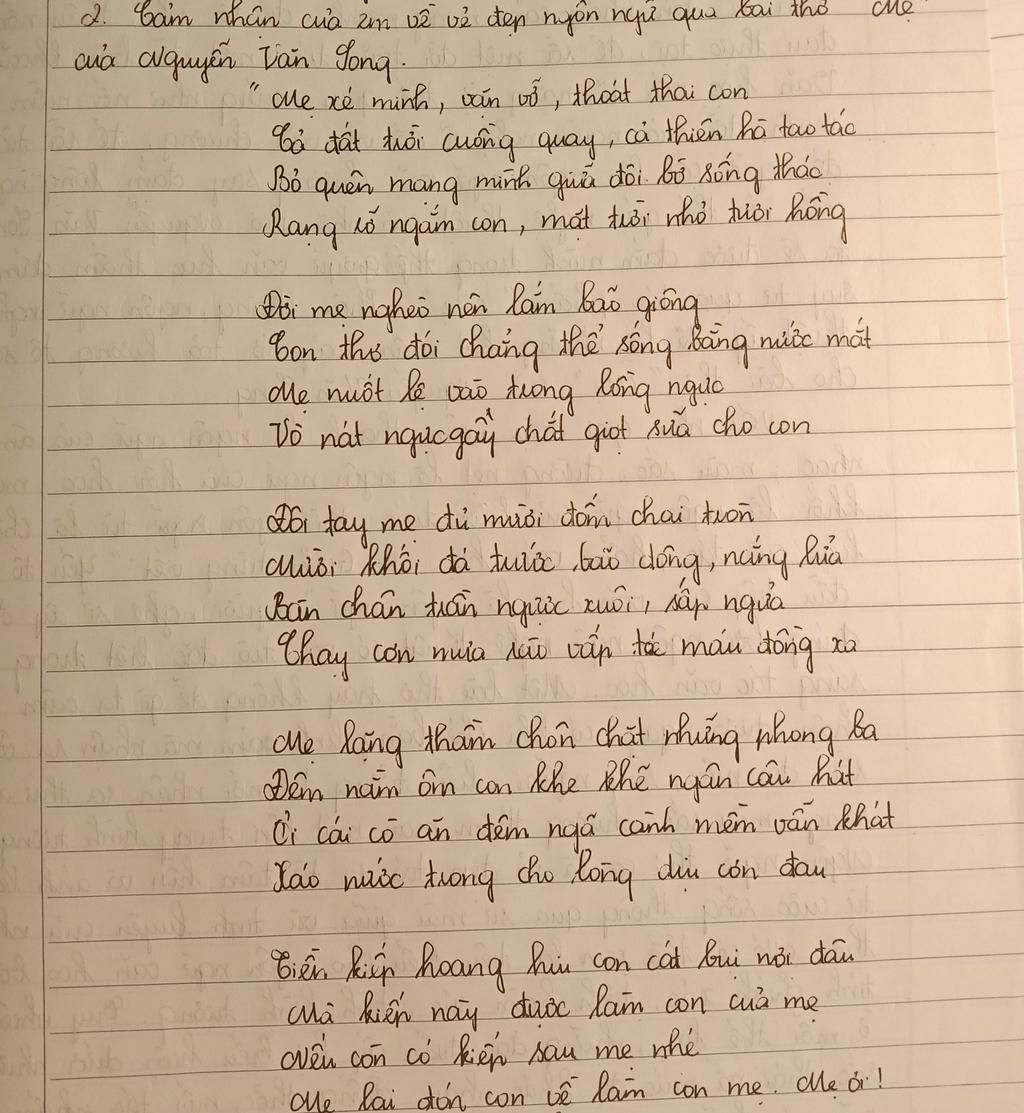 2. Cảm nhận của em về vẻ đẹp ngôn ngữ qua bài thơ Mẹ
của Nguyễn Văn Song.
"Mẹ xé mình, vần vỗ, thoát thai con
Cả đất trời cuồng quay, cả thiên hà tao tác
Bỏ quên mạng mình giữa đôi bờ sống thác
Rạng rỡ ngắm con, mặt trời nhỏ tươi hồng
Đời mẹ nghèo nên lắm bão giông
Con thơ đói chẳng thể sống bằng nước mắt
Mẹ nuốt lệ vào trong lồng ngực
Vò nát ngực gầy chắt giọt sữa cho con
Đôi tay mẹ đủ mười đốm chai tròn
Mười khối đá trước bão dông, nắng lửa
Bàn chân trần ngược xuôi, sấp ngửa
Chạy cơn mưa rào vấp toé máu đồng xa
Mẹ lặng thầm chôn chặt những phong ba
Đêm nằm ôm con khe khẽ ngân câu hát
Ơi cái cò ăn đêm ngã cành mềm vẫn khát
Xáo nước trong cho lòng dịu cơn đau
Tiền kiếp hoang hiu con cát bụi nơi đâu
Mà kiếp này được làm con của mẹ
Nếu còn có kiếp sau mẹ nhé
Mẹ lại đón con về làm con mẹ. Mẹ ơi!